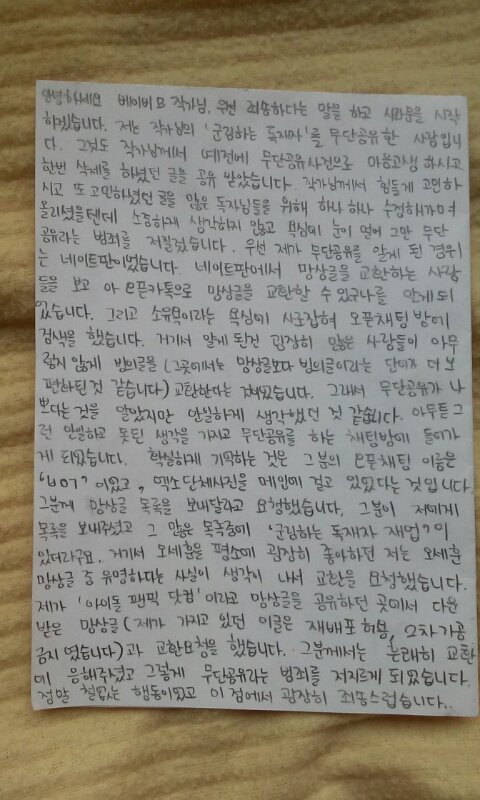 안녕하세요 베이비 B 작가님. 우선 죄송하다는 말을 하고 사과문을 시작
하겠습니다. 저는 작가님의 '군림하는 독재자'를 무단공유한 사람입니
다. 그것도 작가님께서 예전에 무단공유사건으로 마음고생 하시고
한번 삭제를 하셨던 글을 공유 받았습니다. 작가님께서 힘들게 고민하
시고 또 고민하셨던 글을 많은 독자님들을 위해 하나 하나 수정해가며
올리셨을텐데 소중하게 생각하지 않고 욕심에 눈이 멀어 그만 무단
공유라는 범죄를 저질렀습니다. 우선 제가 무단공유를 알게 된 경위
는 네이트판이었습니다. 네이트판에서 망상글을 교환하는 사람
들을 보고 아 오픈카톡으로 망상글을 교환할 수 있구나를 알게되
었습니다. 그리고 소유욕이라는 욕심에 사로잡혀 오픈채팅방에
검색을 했습니다. 거기서 알게 된건 굉장히 많은 사람들이 아무
렇지 않게 빙의글을 (그곳에서는 망상글보다 빙의글이라는 단어가 더 보
편화된 것 같습니다) 교환한다는 것이었습니다. 그래서 무단공유가 나
쁘다는 것을 알았지만 안일하게 생각했던 것 같습니다. 아무튼 그
런 안일하고 못된 생각을 가지고 무단공유를 하는 채팅방에 들어가
게 되었습니다. 확실하게 기억하는 것은 그분의 오픈채팅 이름은
이었고, 엑소단체사진을 메인에 걸고 있었다는 것입니다.
그분께 망상글 목록을 보내달라고 요청했습니다. 그분이 저에게
목록을 보내주셨고 그 많은 목록중에 '군림하는 독재자 재업'이
있더라구요. 거기서 오세훈을 평소에 굉장히 좋아하던 저는 오세훈
망상글 중 유명하다는 사실이 생각이 나서 교환을 요청했습니다.
제가 '아이돌 팬픽 닷컴'이라고 망상글을 공유하던 곳에서 다운
받은 망상글 (제가 가지고 있던 이글은 재배포 허용, 2차가공
금지였습니다)과 교환요청을 했습니다. 그분께서는 흔쾌히 교환
에 응해주셨고 그렇게 무단공유라는 범죄를 저지르게 되었습니다.
정말 철없는 행동이었고 이 점에서 굉장히 죄송스럽습니다..